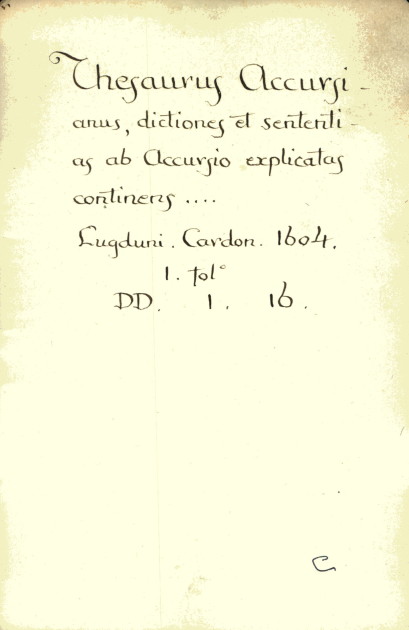 Thesaurus Accursi-
anus, dictiones et sententi-
as ab Accursio explicatas
continens ....
Lugduni. Cardon. 1604.
1. folº
DD. 1. 16.
C